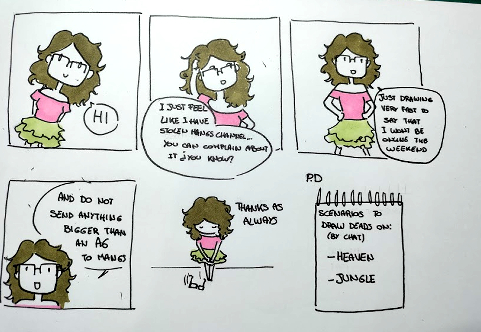 HI
I JUST FEEL
LIKE I HAVE
STOLEN MANGS CHANNEL...
YOU CAN COMPLAIN ABOUT
IT ¿YOU KNOW?
JUST DRAWING
VERY FAST TO
SAY THAT
I WONT BE
ONLINE THIS
WEEKEND
AND DO NOT
SEND ANYTHING
BIGGER THAN
AN A6
TO MANGS
THANKS AS
ALWAYS
PD
SCENARIOS TO
DRAW DEADS ON:
(BY CHAT)
-HEAVEN
-JUNGLE